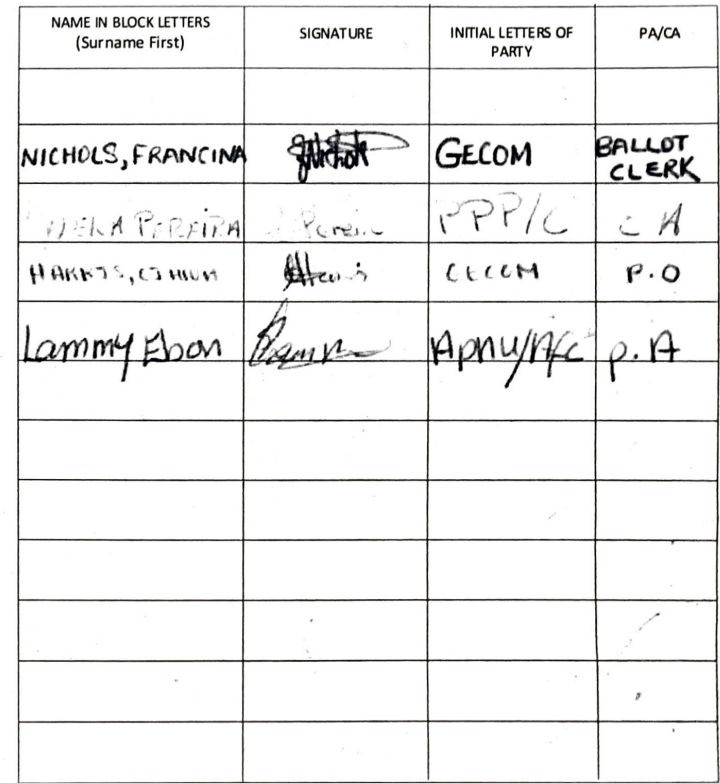 NAME IN BLOCK LETTERS SIGNATURE INITIAL LETTERS OF PA/CA
(Surname First) PARTY
NICHOLS, FRANCINA GECOM BALLOT
CLERK
PEREIRA Pereira PPP/C CA
HARRIS, GECOM P.O
Lammy Ebon APNU/AFC P.A